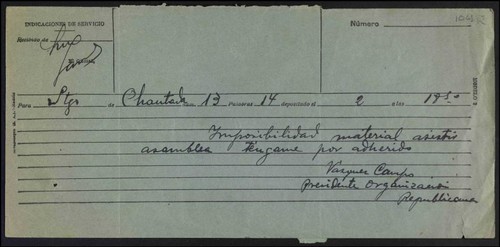 INDICACIONES DE SERVICIO
Número
Para Stgo de Chantada Núm. 13 Palabras 14 depositado el 2 a las 18
Imposibilidad material asistir
asamblea téngame por adherido
Vazquez Campo
Presidente Organización
Republicana